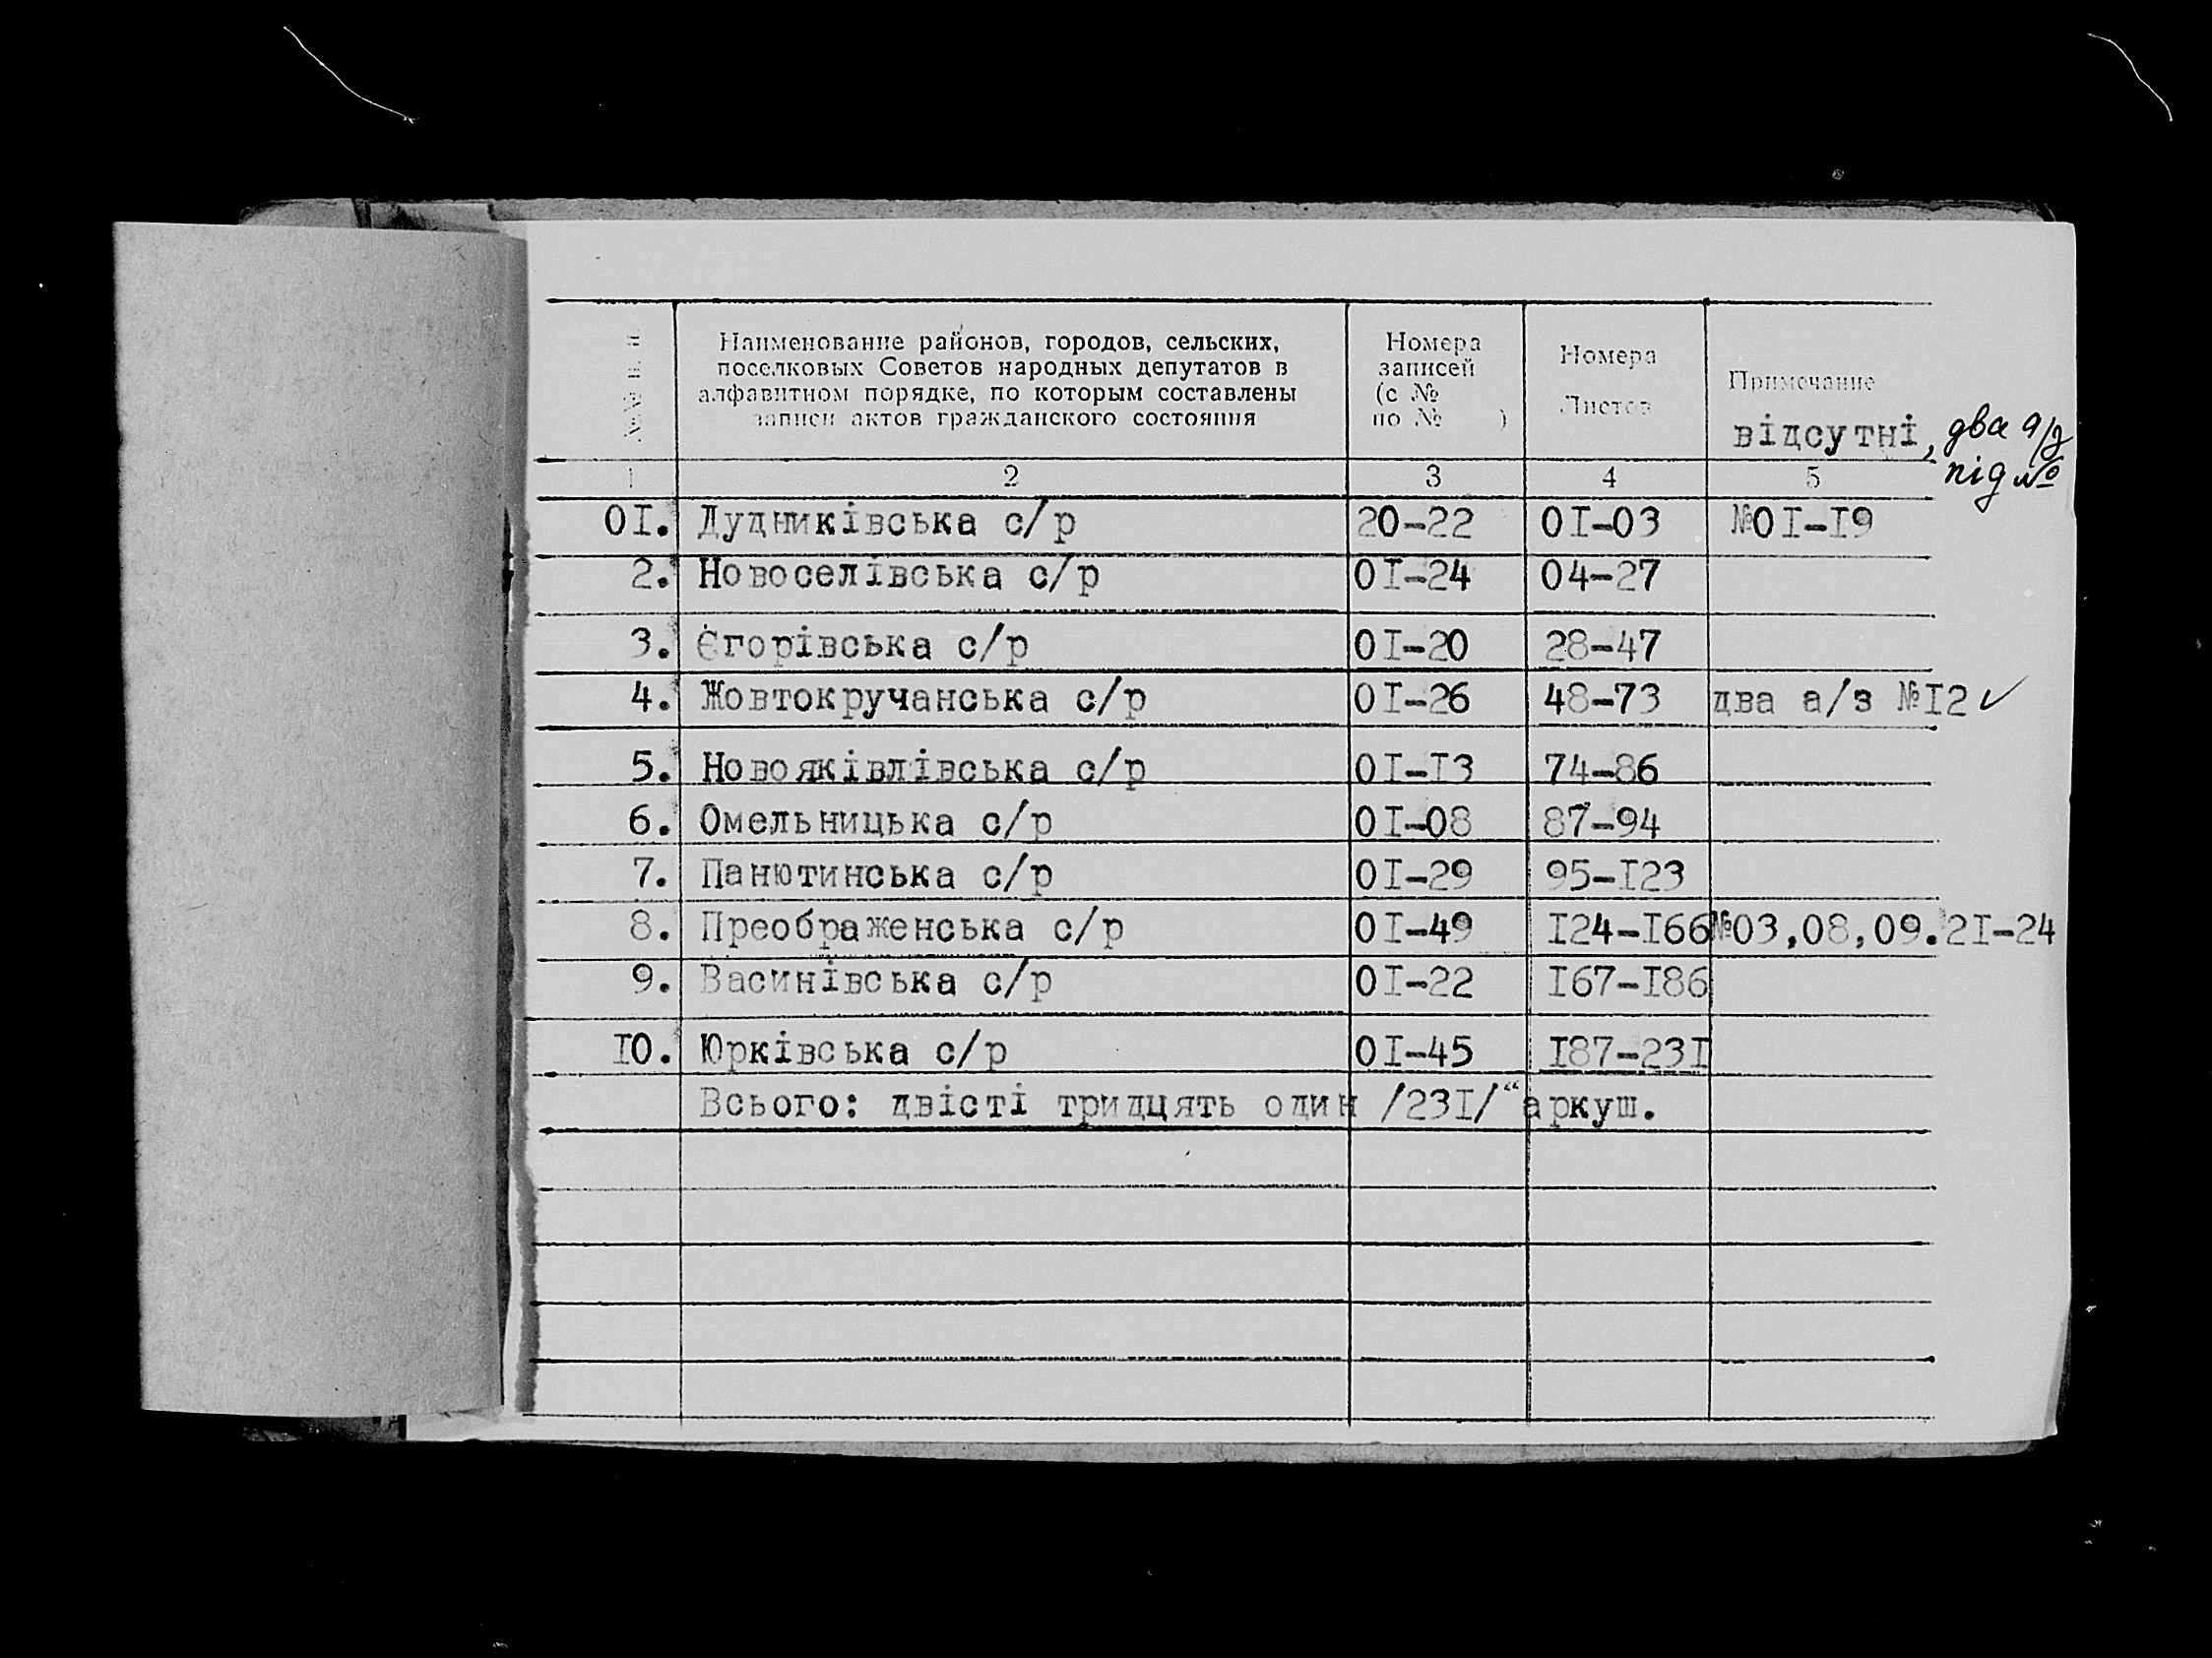 №№ п. п
Наименование районов, городов, сельских,
поселковых Советов народных депутатов в
алфавитном порядке, по которым составлены
записи актов гражданского состояния
Номера
записей
(с №
по № )
Номера
Листов
Примечание
відсутні, два а/з
під №
1 2 3 4 5
0I. Дудниківська с/р 20-22 0I-03 №0I-I9
2. Новоселівська с/р 0I-24 04-27
3. Єгорівська с/р 0I-20 28-47
4. Жовтокручанська с/р 0I-26 48-73 два а/з №I2 ✓
5. Новояківлівська с/р 0I-I3 74-86
6. Омельницька с/р 0I-08 87-94
7. Панютинська с/р 0I-29 95-I23
8. Преображенська с/р 0I-49 I24-I66 №03,08,09.2I-24
9. Васинівська с/р 0I-22 I67-I86
I0. Юрківська с/р 0I-45 I87-23I
Всього: двісті тридцять один /23I/ аркуш.